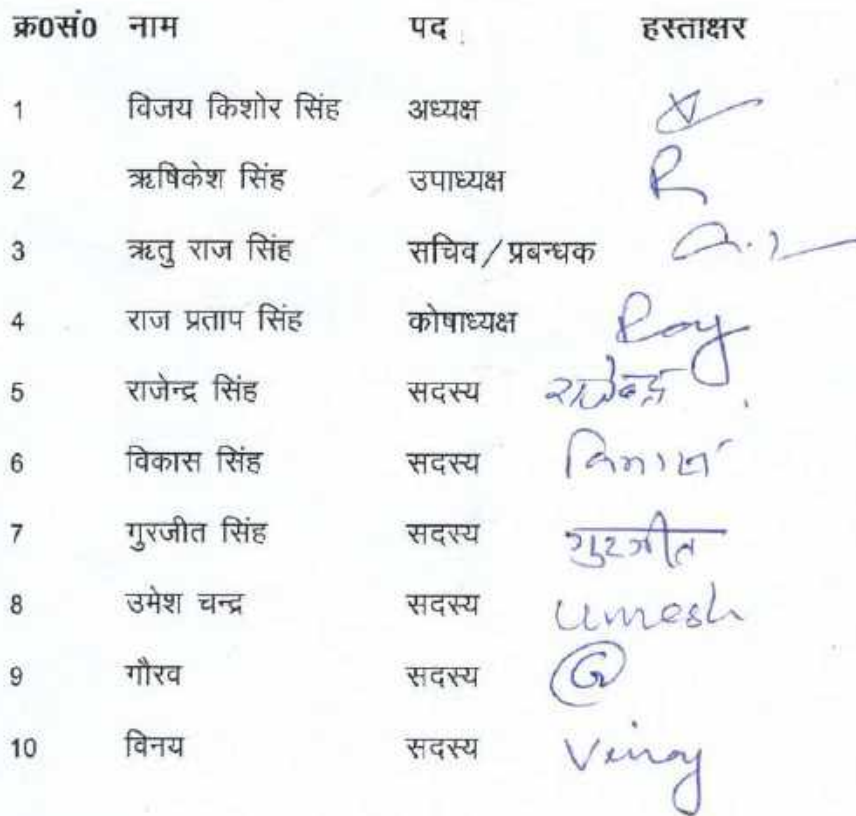 क्र0सं0 नाम पद हस्ताक्षर
1 विजय किशोर सिंह अध्यक्ष
2 ऋषिकेश सिंह उपाध्यक्ष R
3 ऋतु राज सिंह सचिव/प्रबन्धक
4 राज प्रताप सिंह कोषाध्यक्ष Ray
5 राजेन्द्र सिंह सदस्य राजेन्द्र
6 विकास सिंह सदस्य
7 गुरजीत सिंह सदस्य गुरजीत
8 उमेश चन्द्र सदस्य Umesh
9 गौरव सदस्य G
10 विनय सदस्य Vinay